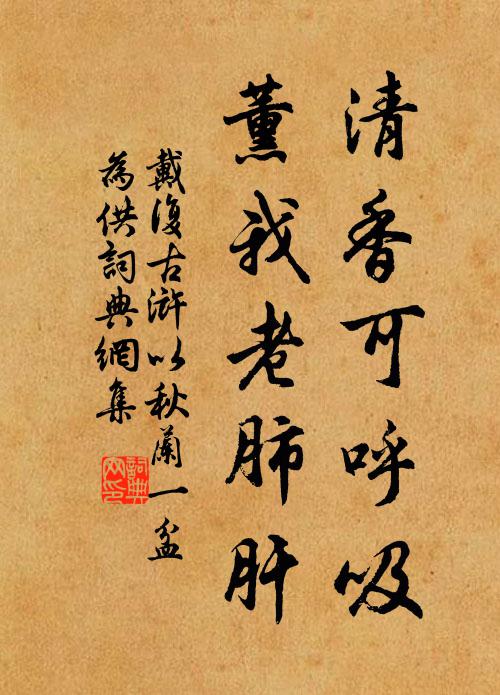 清香可呼吸
薰我老肺肝
戴復古滸以秋蘭一盆
為供詞典網集
詞典
网印